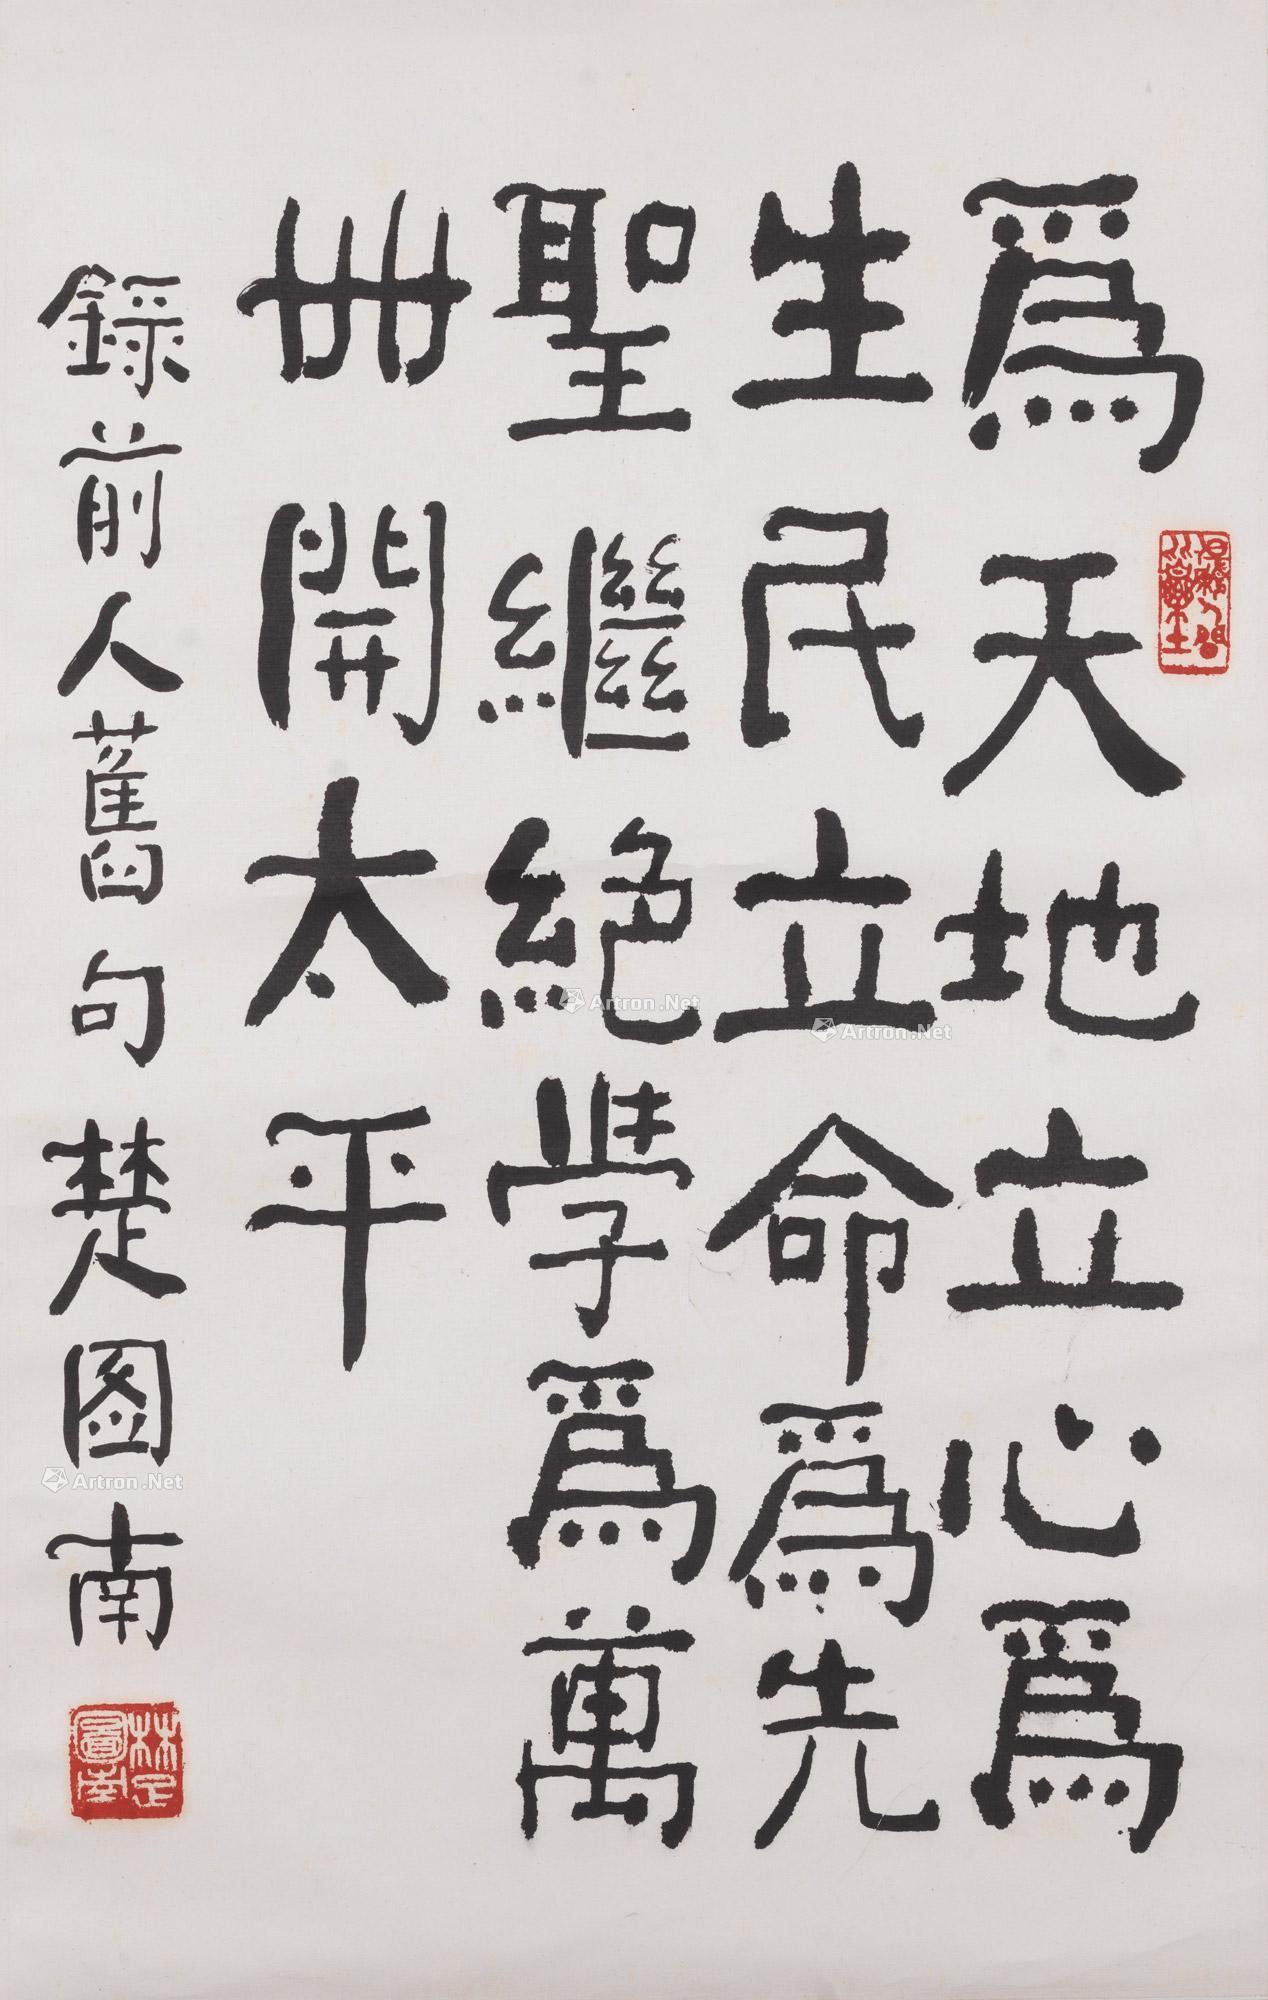 爲天地立心爲
生民立命爲先
聖繼絕學爲萬
卋開太平
錄前人舊句楚图南
楚圖南
Artron.Net
Artron.Net
Artron.Net